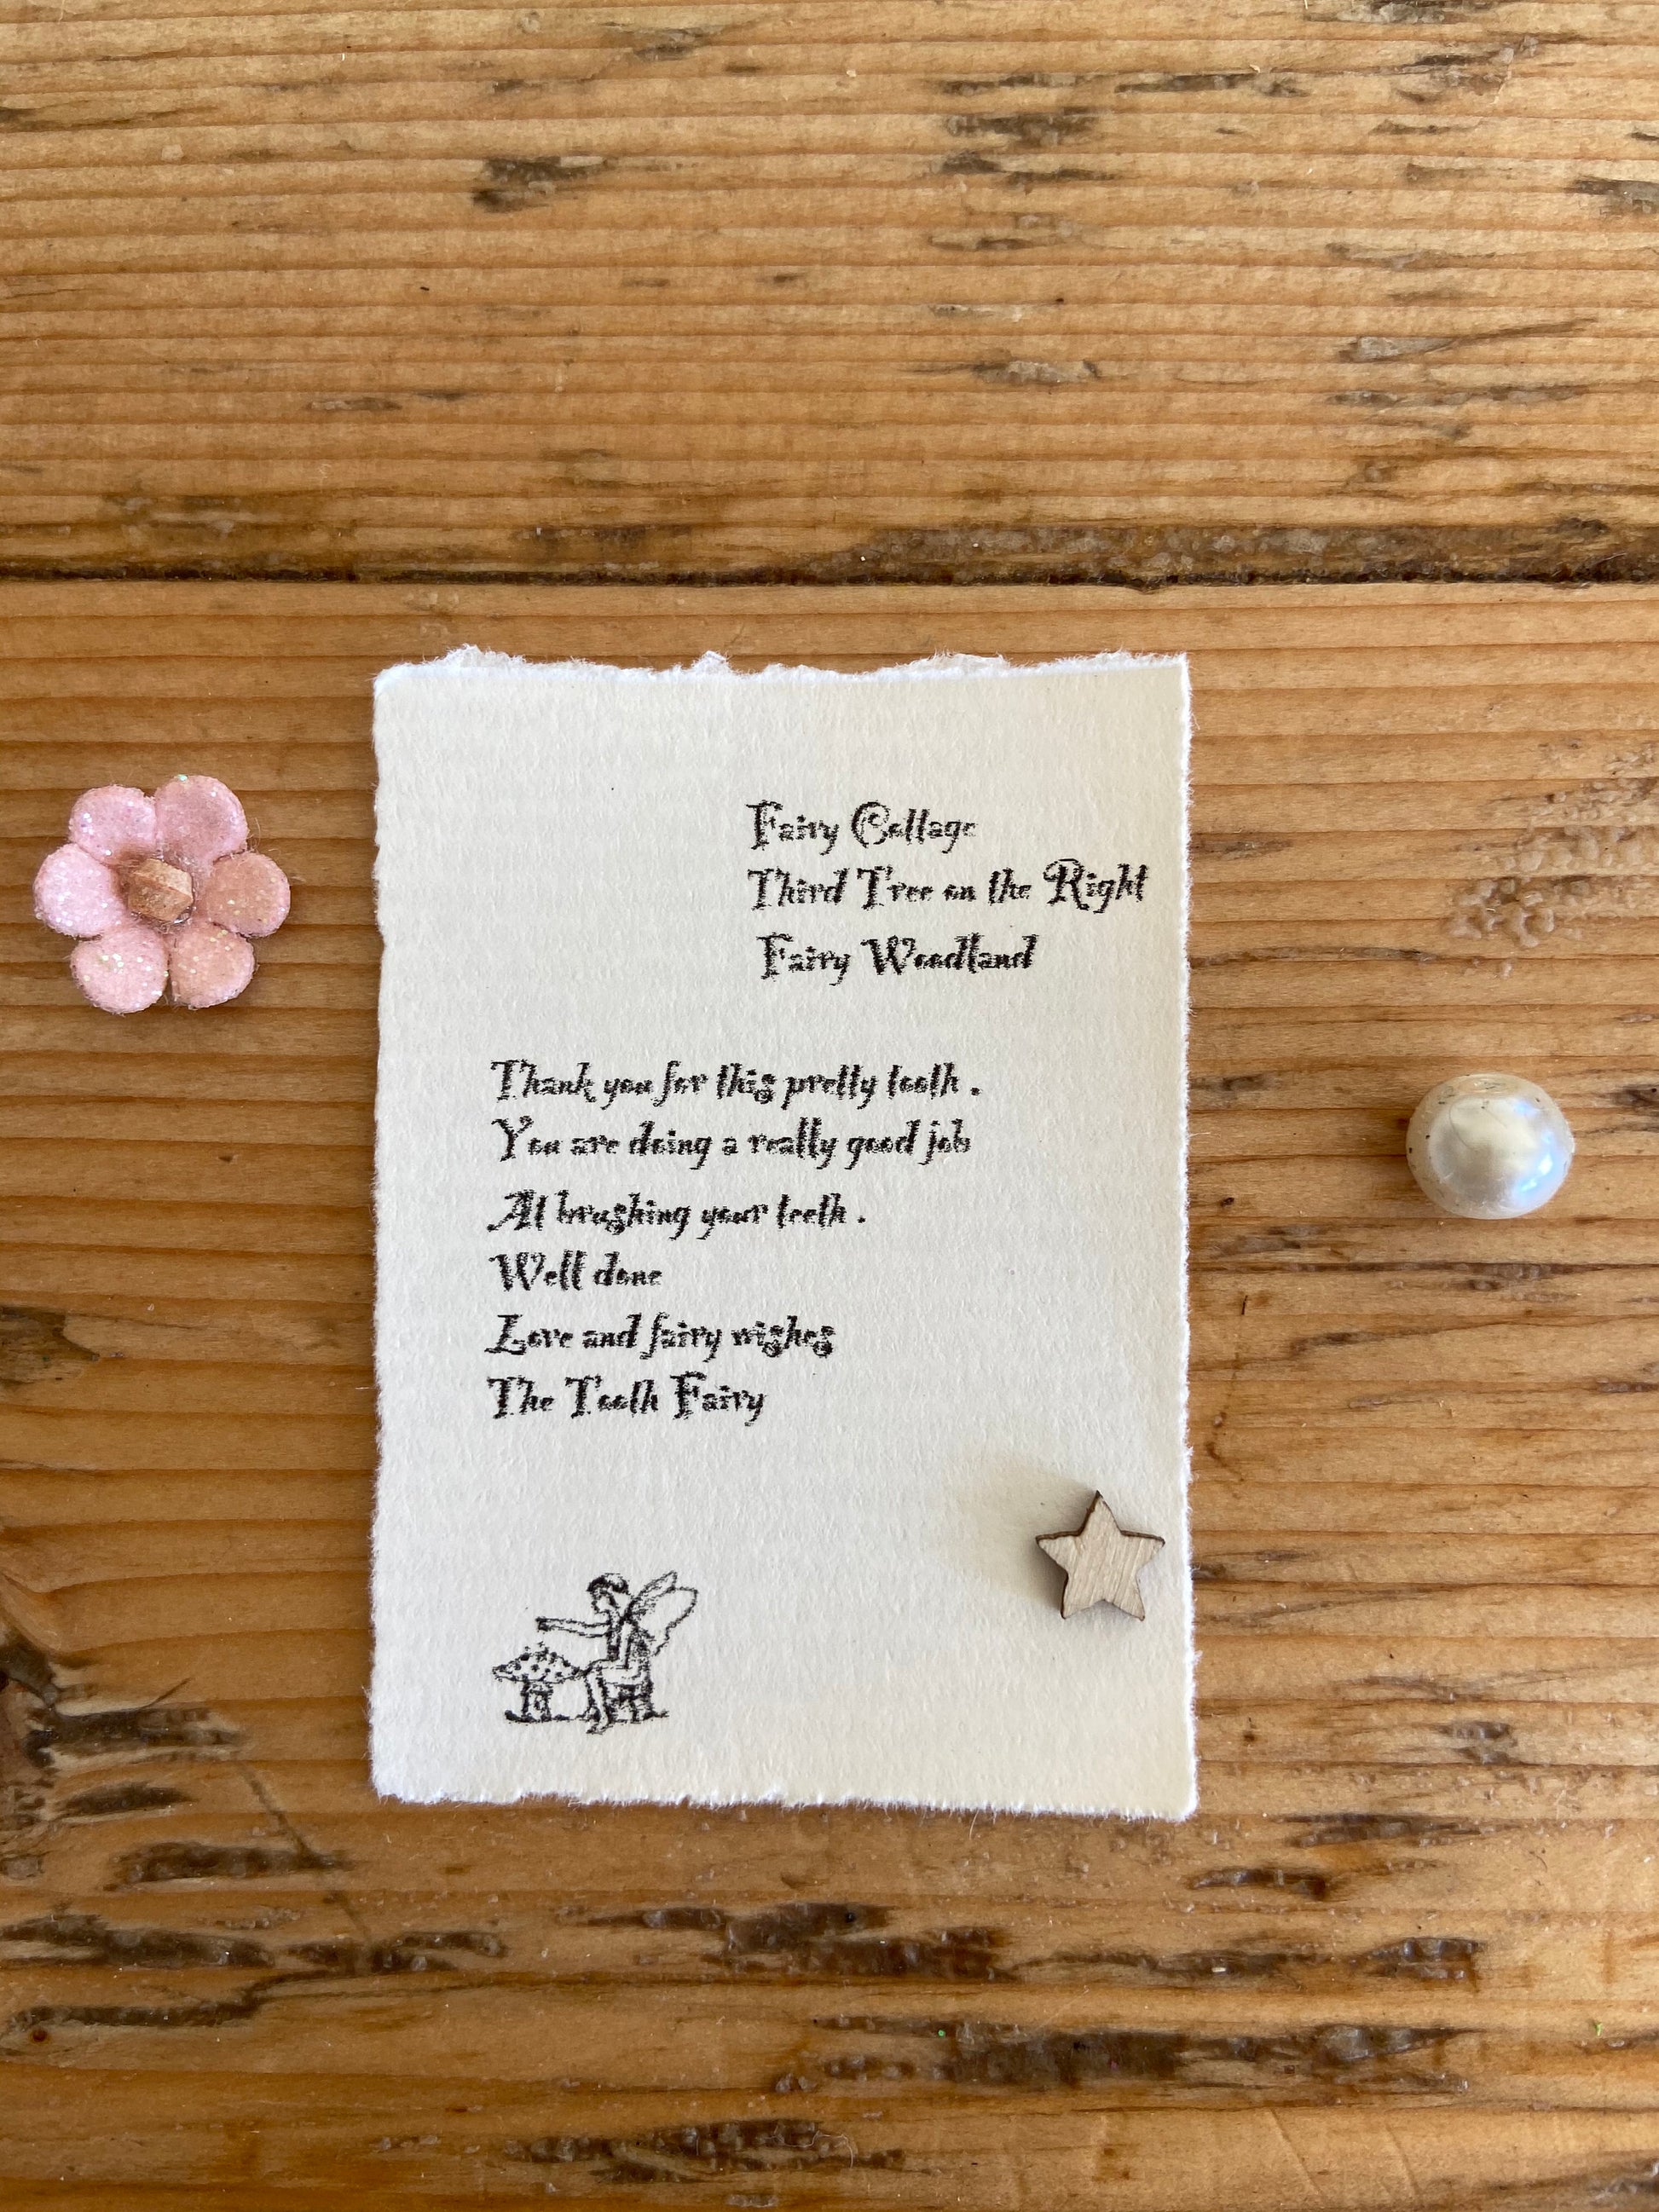 Fairy Cottage
Third Tree on the Right
Fairy Woodland
Thank you for this pretty tooth .
You are doing a really good job
At brushing your teeth .
Well done
Love and fairy wishes
The Tooth Fairy